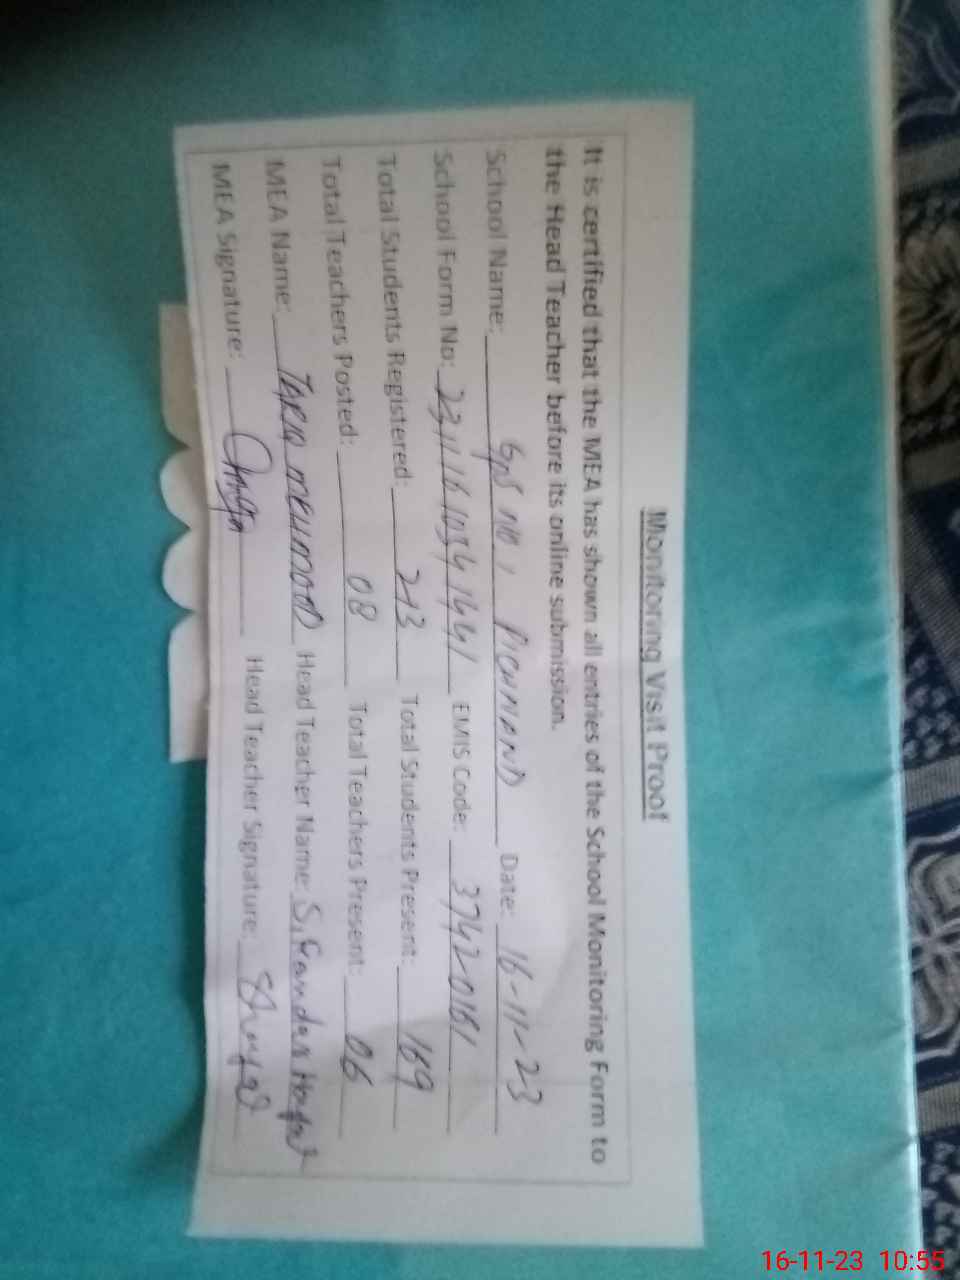 Monitoring Visit Proof
It is certified that the MEA has shown all entries of the School Monitoring Form to
the Head Teacher before its online submission.
School Name: GPS NO 1 Date: 16-11-23
School Form No: EMIS Code: 37420181
Total Students Registered: 213 Total Students Present: 189
Total Teachers Posted: 08 Total Teachers Present: 06
MEA Name: TARIQ MEHMOOD Head Teacher Name: S.
MEA Signature: Head Teacher Signature:
16-11-23 10:55